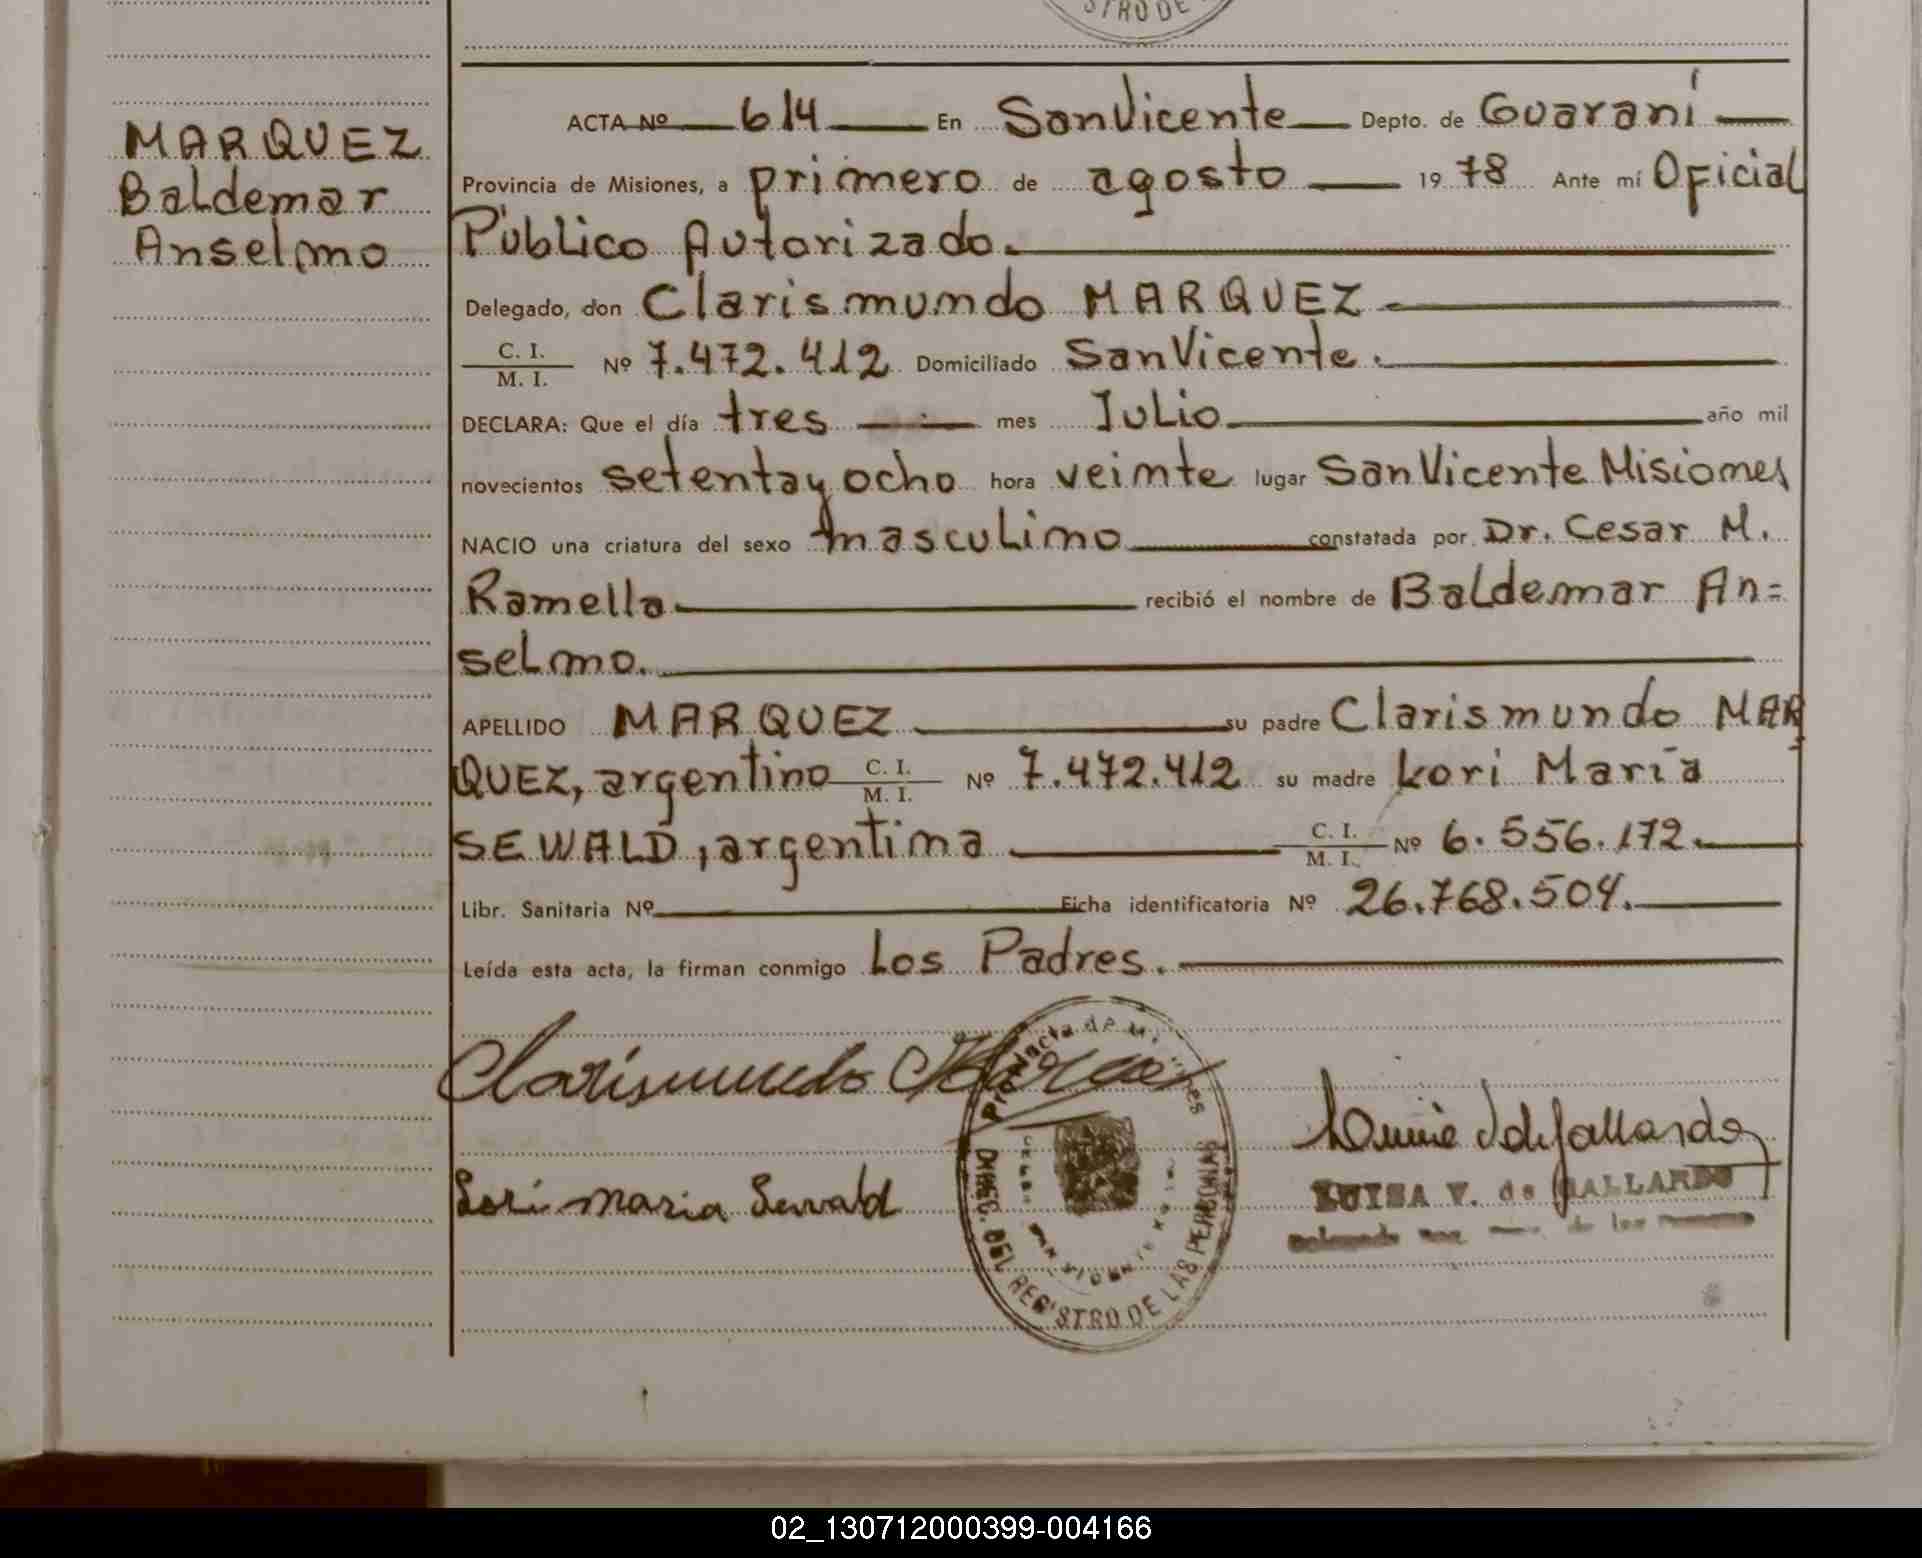 STRO DE
MARQUEZ
Baldemar
Anselmo
ACTA Nº 614 En San Vicente Depto. de Guaraní
Provincia de Misiones, a primero de agosto 19 78 Ante mí Oficial
Público Autorizado.
Delegado, don Clarismundo MARQUEZ
C. I.
M. I. Nº 7.472.412 Domiciliado San Vicente.
DECLARA: Que el día tres mes Julio año mil
novecientos setenta y ocho hora veinte lugar San Vicente Misiones
NACIO una criatura del sexo masculino constatada por Dr. Cesar M.
Ramella recibió el nombre de Baldemar An=
selmo.
APELLIDO MARQUEZ su padre Clarismundo MAR
QUEZ, argentino C. I. M. I. Nº 7.472.412 su madre Lori María
SEWALD, argentina C. I. M. I. Nº 6.556.172
Libr. Sanitaria Nº Ficha identificatoria Nº 26.768.504.
Leída esta acta, la firman conmigo Los Padres.
Clarismundo
Lori Maria Sewald
Provincia de Misiones
DIREC. DEL REGISTRO DE LAS PERSONAS
LUISA V. de GALLARDO
de las
02_130712000399-004166